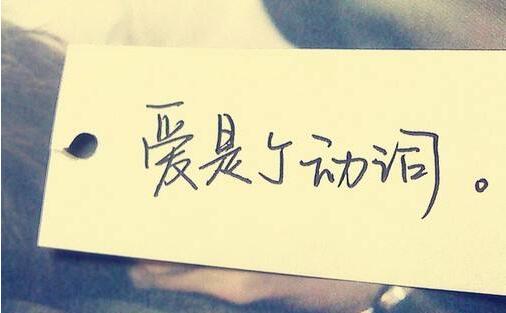 爱是个动词。